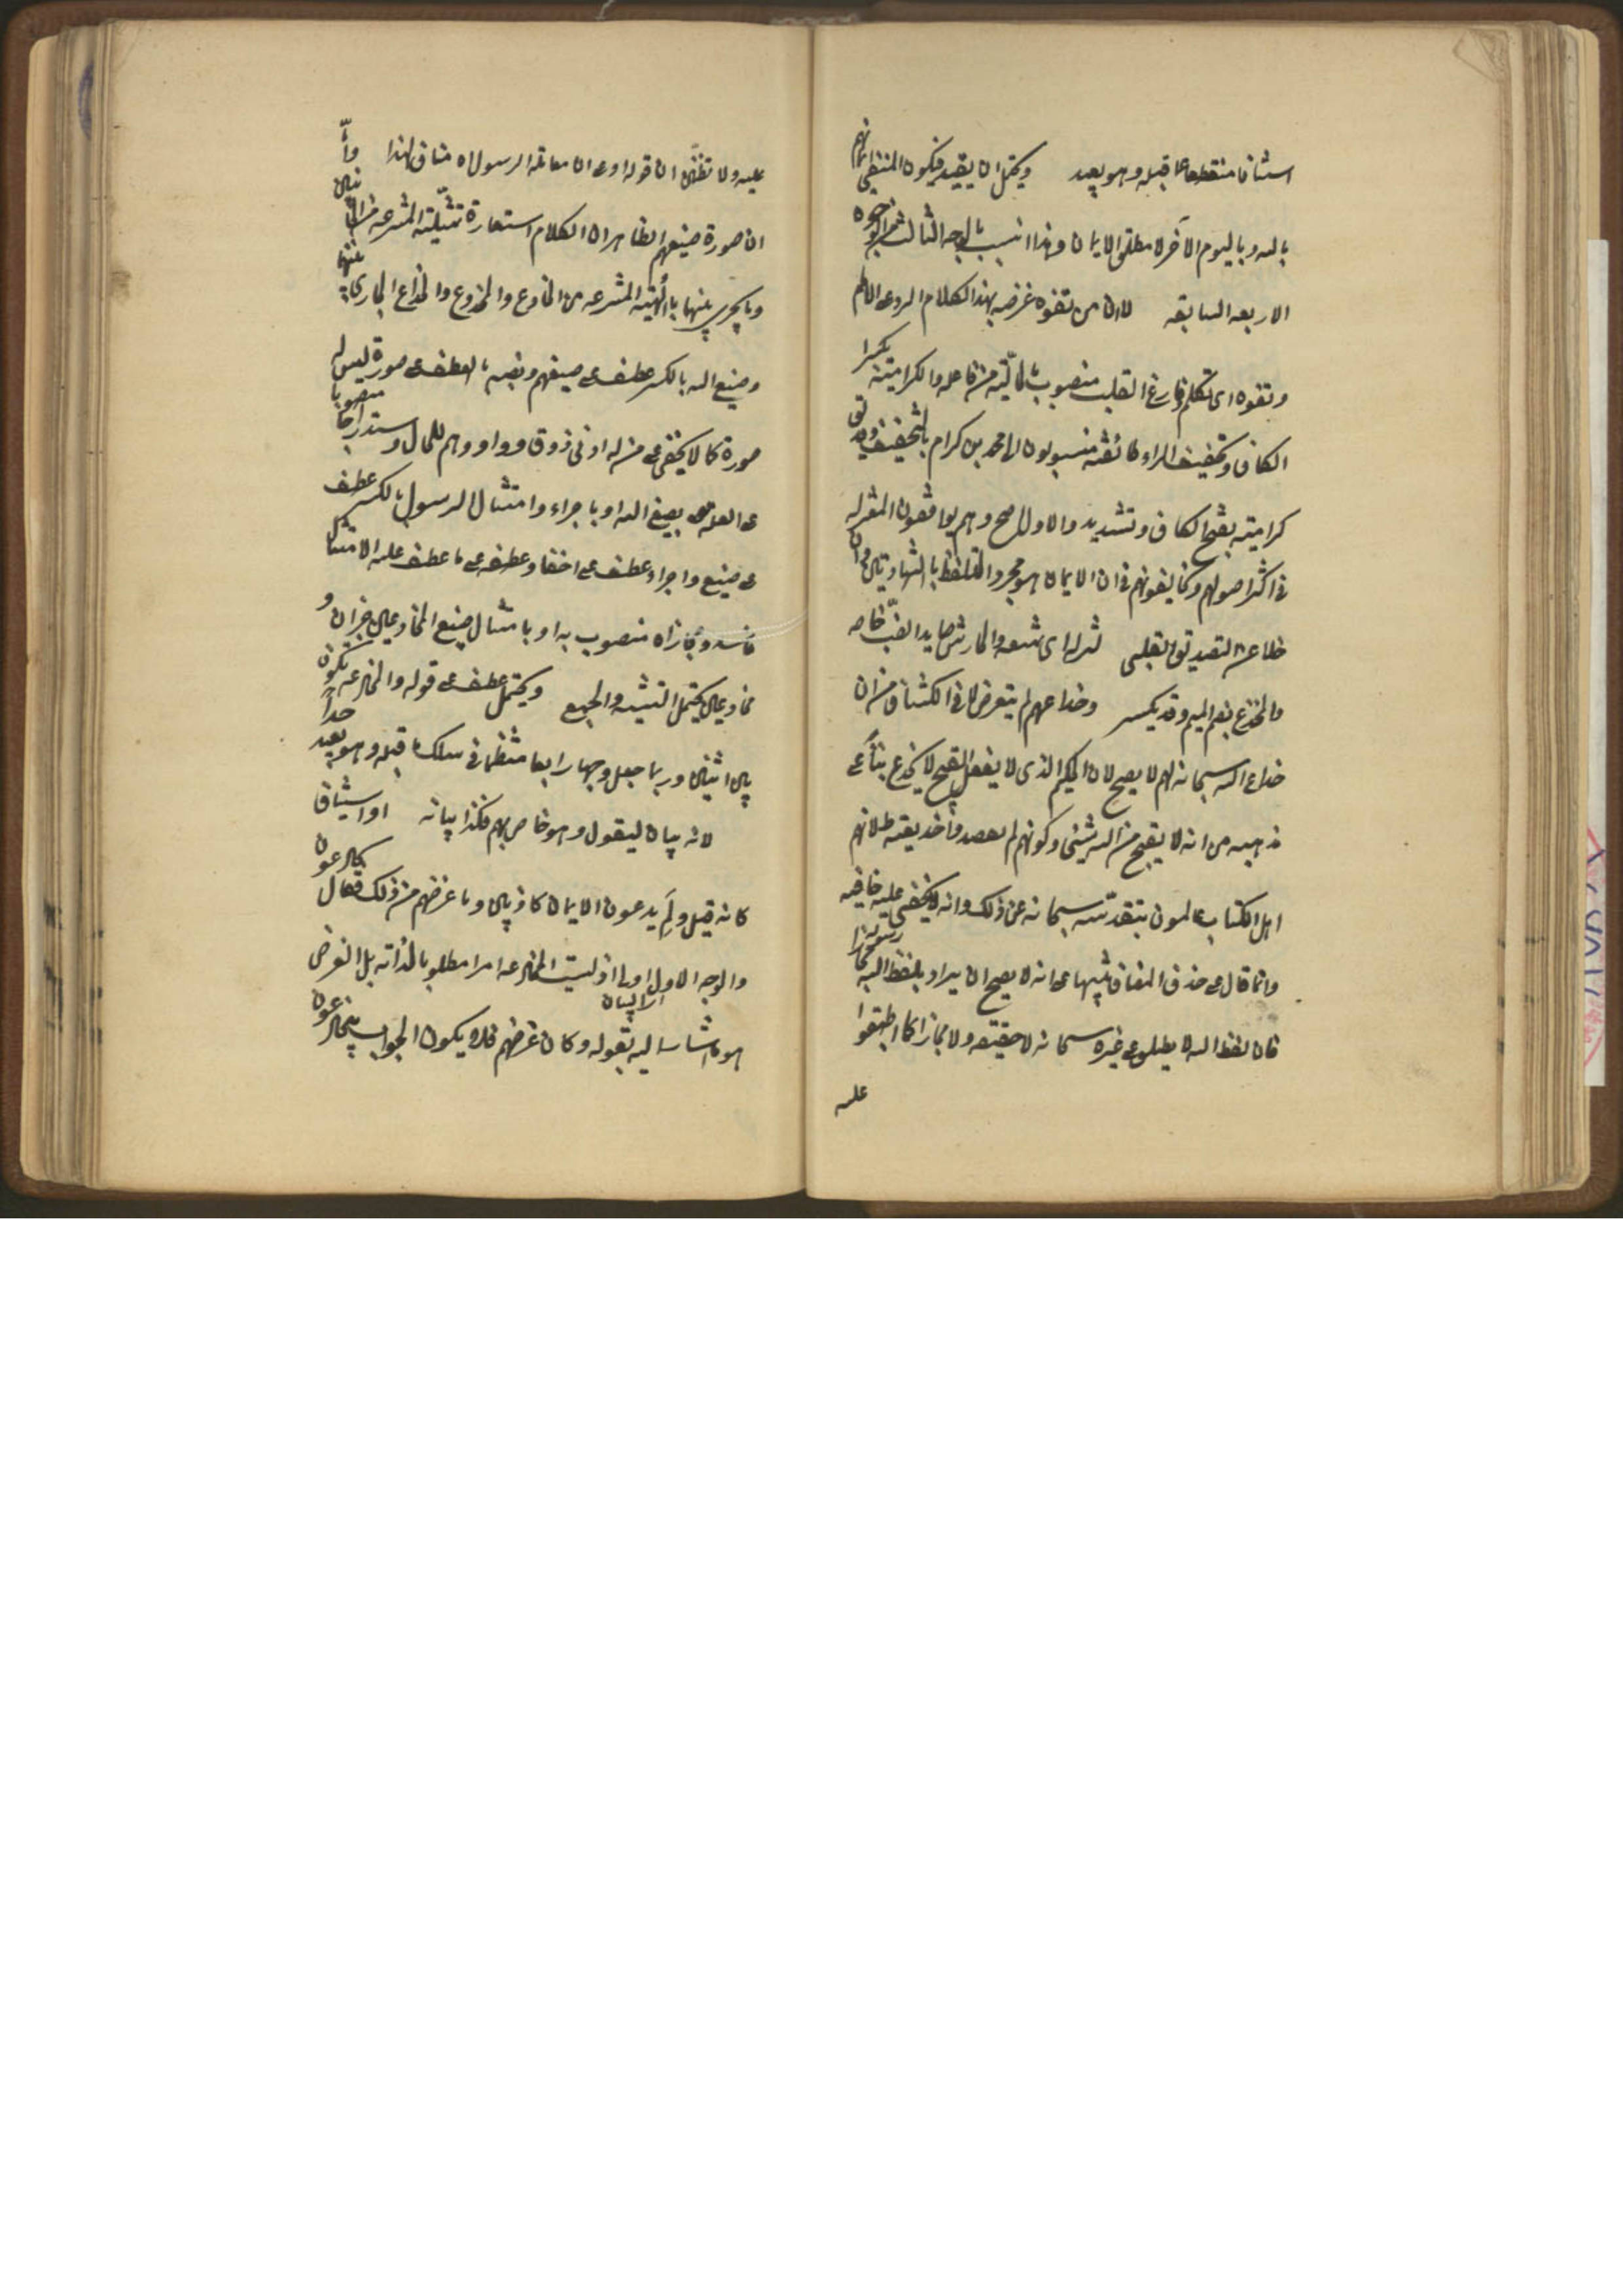 استئنافا منقطعا عما قبله وهو بعيد ويحتمل ان يقيد فيكون المنفي ايمانهم
بالله وباليوم الآخر لا مطلق الايمان وهذا انسب بالوجه الثالث من الوجوه
الاربعه السابقه لان من تفوه غرضه بهذا الكلام الرد على الامام
وتفوه اى تكلم فارغ القلب منصوب بالحالية من فاعله والكرامية بكسر
الكاف وتخفيف الراء طائفة منسوبون الى محمد بن كرام بالتخفيف وقد يق
كرامية بفتح الكاف وتشديد والاول اصح وهم يوافقون المعتزله
فى اكثر اصولهم ويخالفونهم فى ان الايمان هو مجرد التلفظ بالشهادتين وان
خلا عن التصديق القلبى لنزله اى شعه والحارش صايد الضب خاصه
والمخدع بضم الميم وقد يكسر وخداعهم لم يتعرض لما فى الكشاف من ان
خداع الله سبحانه لهم لا يصح لان الحكيم الذى لا يفعل القبيح لا يخدع بناء على
مذهبه من انه لا يقبح من الله شيئ وكونهم لم يقصدوا خديعته لانهم
اهل الكتاب عالمون بتقدسه سبحانه عن ذلك وانه لا يخفى عليه خافيه
وانما قال على حذف المضاف تنبيها على انه لا يصح ان يراد بلفظ الله رسوله مجازا
فان لفظ الله لا يطلق على غيره سبحانه لا حقيقه ولا مجازا كما اطبقوا
عليه
عليه ولا تظنن ان قوله او على ان معاملة الرسول اه مناف لهذا وأما
ان صورة صنيعهم الظاهر ان الكلام استعارة تمثيلية المنتزعه من الجانبين
وما يجرى بينهما بالهيئة المنتزعه من الخادع والمخدوع والخداع الجارى بينهما
وصنيع الله بالكسر عطف على صنيعهم ونصبه بالعطف على صورة ليس له
صورة كما لا يخفى على من له ادنى ذوق وواو وهم للحال واستدراجا منصوبا
على العلة بصنع الله او باجراء وامتثال الرسول بالكسر عطف
على صنيع واجراء عطف على اخفا وعطفه على ما عطف عليه الامتثال
فاسد ومجازاه منصوب به او بامتثال صنيع المخادعين خبر ان و
مخادعين يحتمل التثنيه والجمع ويحتمل عطف على قوله والمخادعه تكون
بين اثنين وربما جعل وجها رابعا منتظما فى سلك ما قبله وهو بعيد جدا
لانه بيان ليقول وهو خاص بهم فكذا بيانه او استيناف
كانه قيل ولم يدعون الايمان كاذبين وما غرضهم من ذلك فقال يخادعون
والوجه الاول اولى اذ ليست المخادعه امرا مطلوبا لذاته بل الغرض
هو ما اشار اليه بقوله وكان غرضهم فلا يكون الجواب بيخادعون